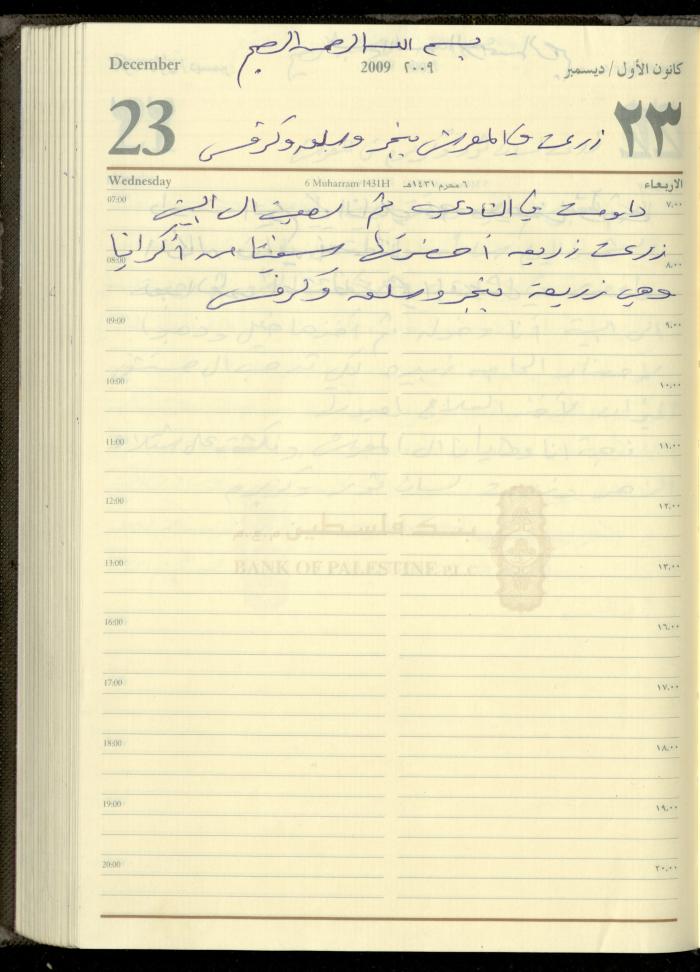 بسم الله الرحمن الرحيم
December
2009 ٢٠٠٩
كانون الأول / ديسمبر
23
٢٣
زرعت في المورش بنجر وسلق وكرفس
Wednesday
6 Muharram 1431H
٦ محرم ١٤٣١هـ
الاربعاء
07:00
٧،٠٠
داومت في النادي ثم رجعت الى البيت
زرعت زريعه أحضرتها من أكرانيا
08:00
٨،٠٠
وهي زريعة بنجر وسلق وكرفس
09:00
٩،٠٠
10:00
١٠،٠٠
11:00
١١،٠٠
12:00
١٢،٠٠
بنك فلسطين م.ع.م
13:00
١٣،٠٠
BANK OF PALESTINE PLC
16:00
١٦،٠٠
17:00
١٧،٠٠
18:00
١٨،٠٠
19:00
١٩،٠٠
20:00
٢٠،٠٠